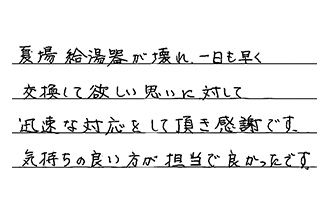 夏場 給湯器が壊れ、一日も早く
交換して欲しい思いに対して
迅速な対応をして頂き感謝です。
気持ちの良い方が担当で良かったです。